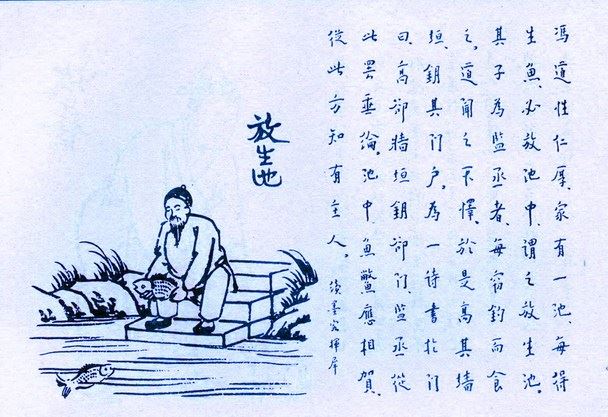 馮道性仁厚,家有一池,每得
生魚,必放池中,謂之放生池。
其子為監丞者,每竊釣而食
之。道聞之不懌,於是高其墻
垣,鑰其門戶,為一詩書於門
曰,高卻牆垣鑰卻門,監丞從
此罢垂綸,池中魚鱉應相賀,
從此方知有主人。
續墨客揮犀
放生池